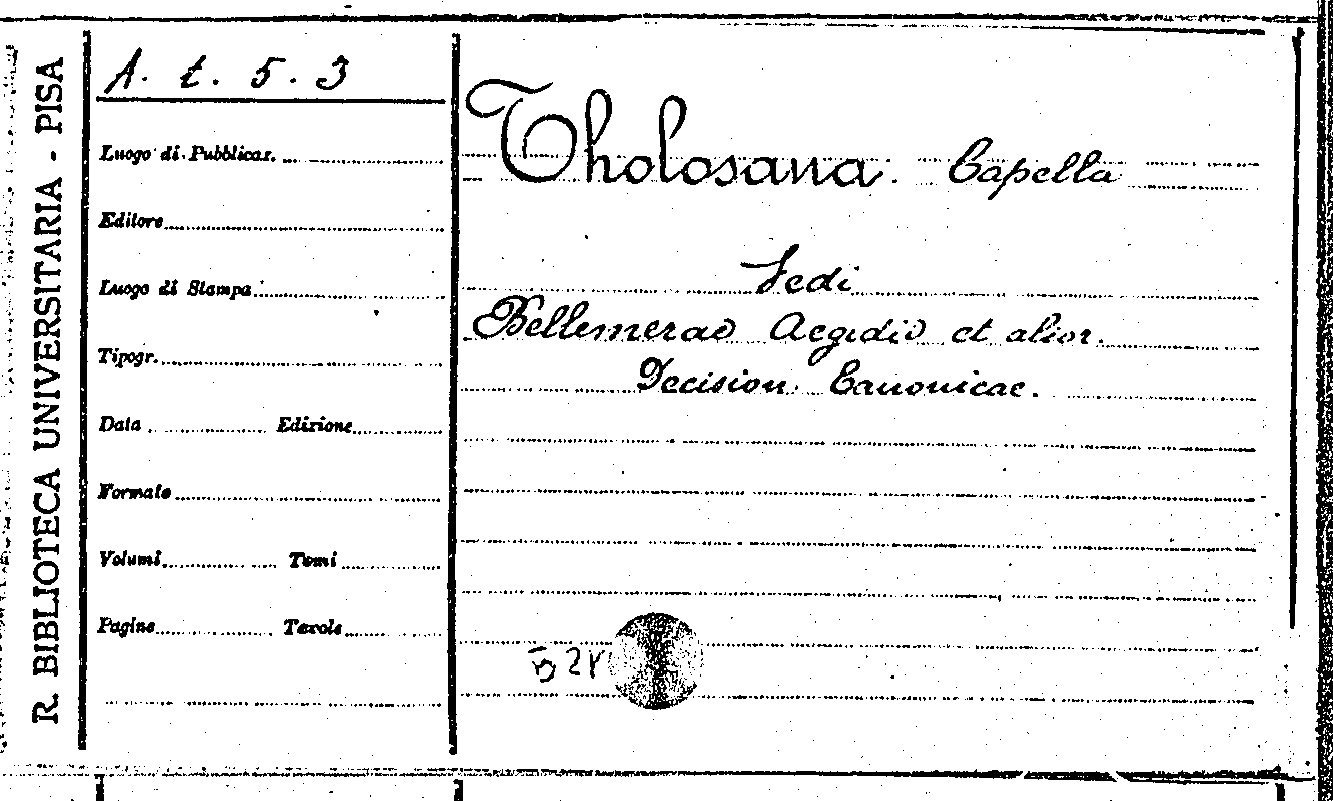 R. BIBLIOTECA UNIVERSITARIA - PISA
A. t. 5. 3
Luogo di Pubblicaz.
Editore
Luogo di Stampa
Tipogr.
Data Edizione
Formato
Volumi Tomi
Pagine Tavole
Tholosana. Capella
Vedi
Bellemerae Aegidii et alior.
Decision. Canonicae.